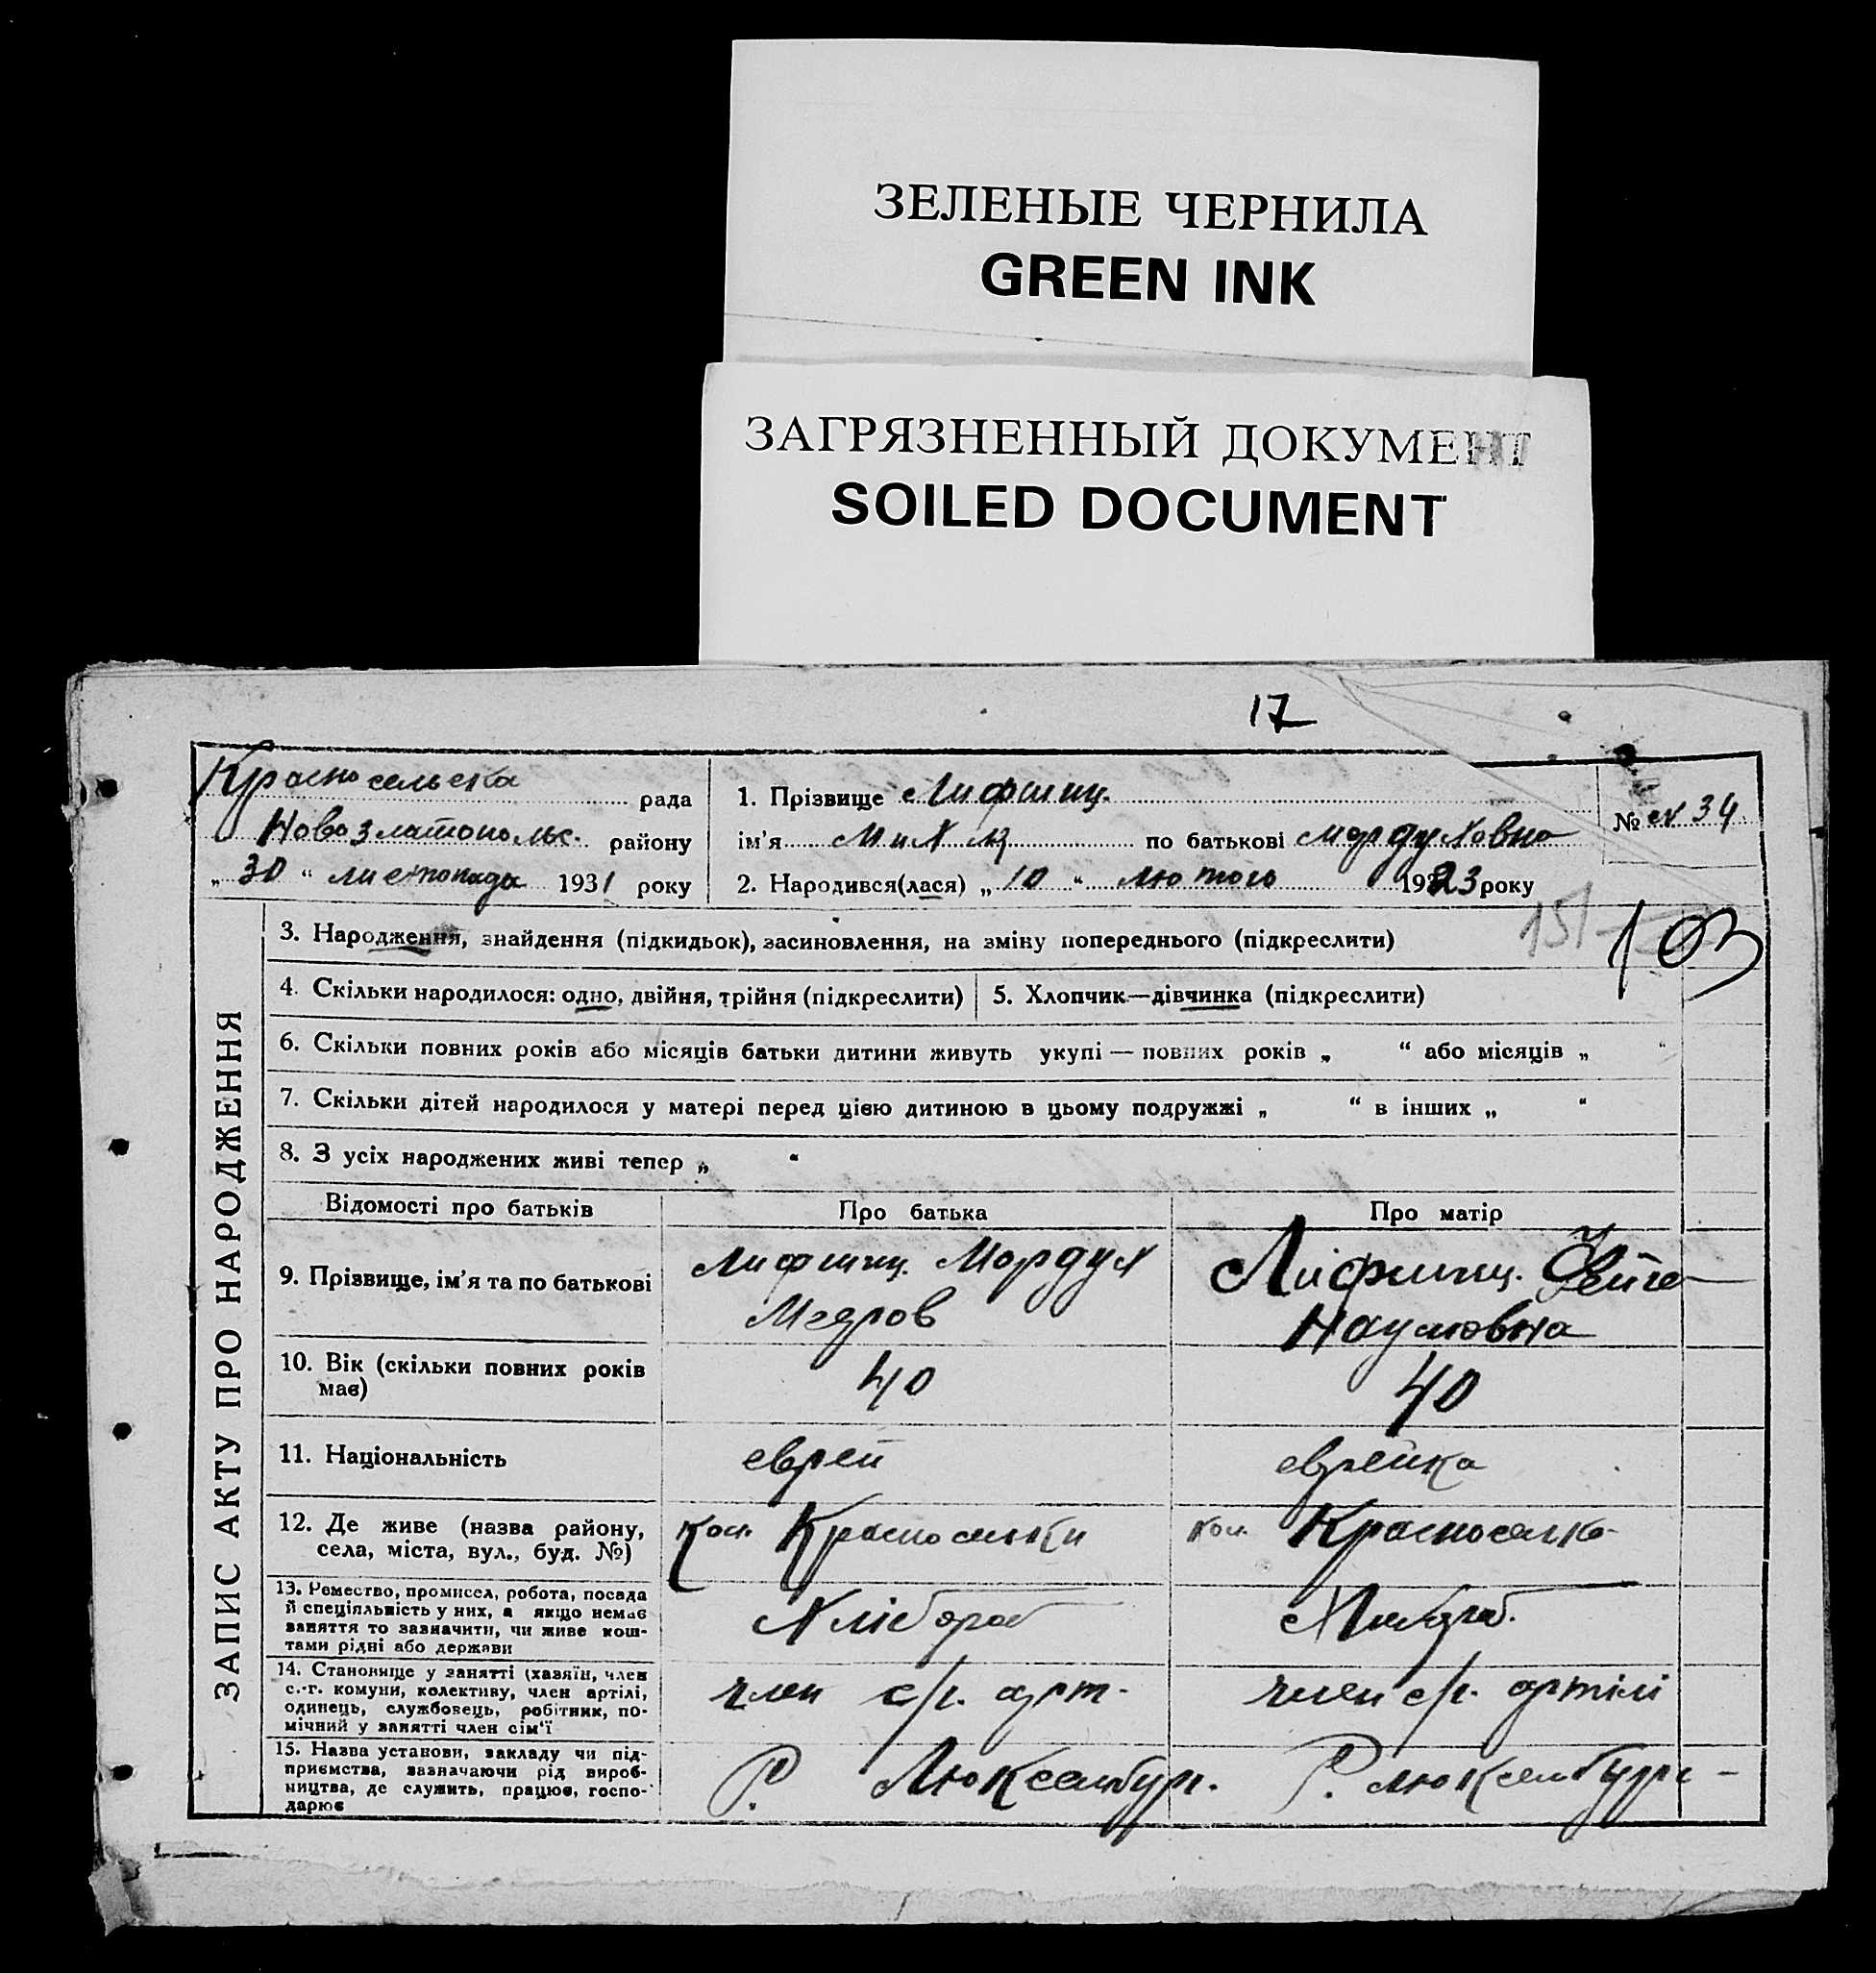 ЗЕЛЕНЫЕ ЧЕРНИЛА
GREEN INK
ЗАГРЯЗНЕННЫЙ ДОКУМЕНТ
SOILED DOCUMENT
17
Красносельска рада
Новозлатопольс. району
„ 30 “ листопада 1931 року
1. Прізвище Лифшиц.
ім'я по батькові Мордуховна
2. Народився(лася) „ 10 “ лютого 1923 року
№ 34
3. Народження, знайдення (підкидьок), засиновлення, на зміну попереднього (підкреслити)
151
103
4. Скільки народилося: одно, двійня, трійня (підкреслити)
5. Хлопчик—дівчинка (підкреслити)
6. Скільки повних років або місяців батьки дитини живуть укупі — повних років „ “ або місяців „ “
7. Скільки дітей народилося у матері перед цією дитиною в цьому подружжі „ “ в інших „ “
8. З усіх народжених живі тепер „ “
ЗАПИС АКТУ ПРО НАРОДЖЕННЯ
Відомості про батьків
Про батька
Про матір
9. Прізвище, ім'я та по батькові
Лифшиц. Мордух
Лифшиц. Фейга
Наумовна
10. Вік (скільки повних років
має)
40
40
11. Національність
еврей
еврейка
12. Де живе (назва району,
села, міста, вул., буд. №)
кол. Красноселки
кол. Красноселка
13. Ремество, промисел, робота, посада
й спеціяльність у них, а якщо немає
заняття то зазначити, чи живе кош-
тами рідні або держави
Хлібороб
Хлібороб.
14. Становище у занятті (хазяїн, член
с.-г. комуни, колективу, член артілі,
одинець, службовець, робітник, по-
мічний у занятті член сім'ї
член с/г. арт-
член с/г. артілі
15. Назва установи, закладу чи під-
приємства, зазначаючи рід вироб-
ництва, де служить, працює, госпо-
дарює
Р. Люксембург.
Р. Люксембург-